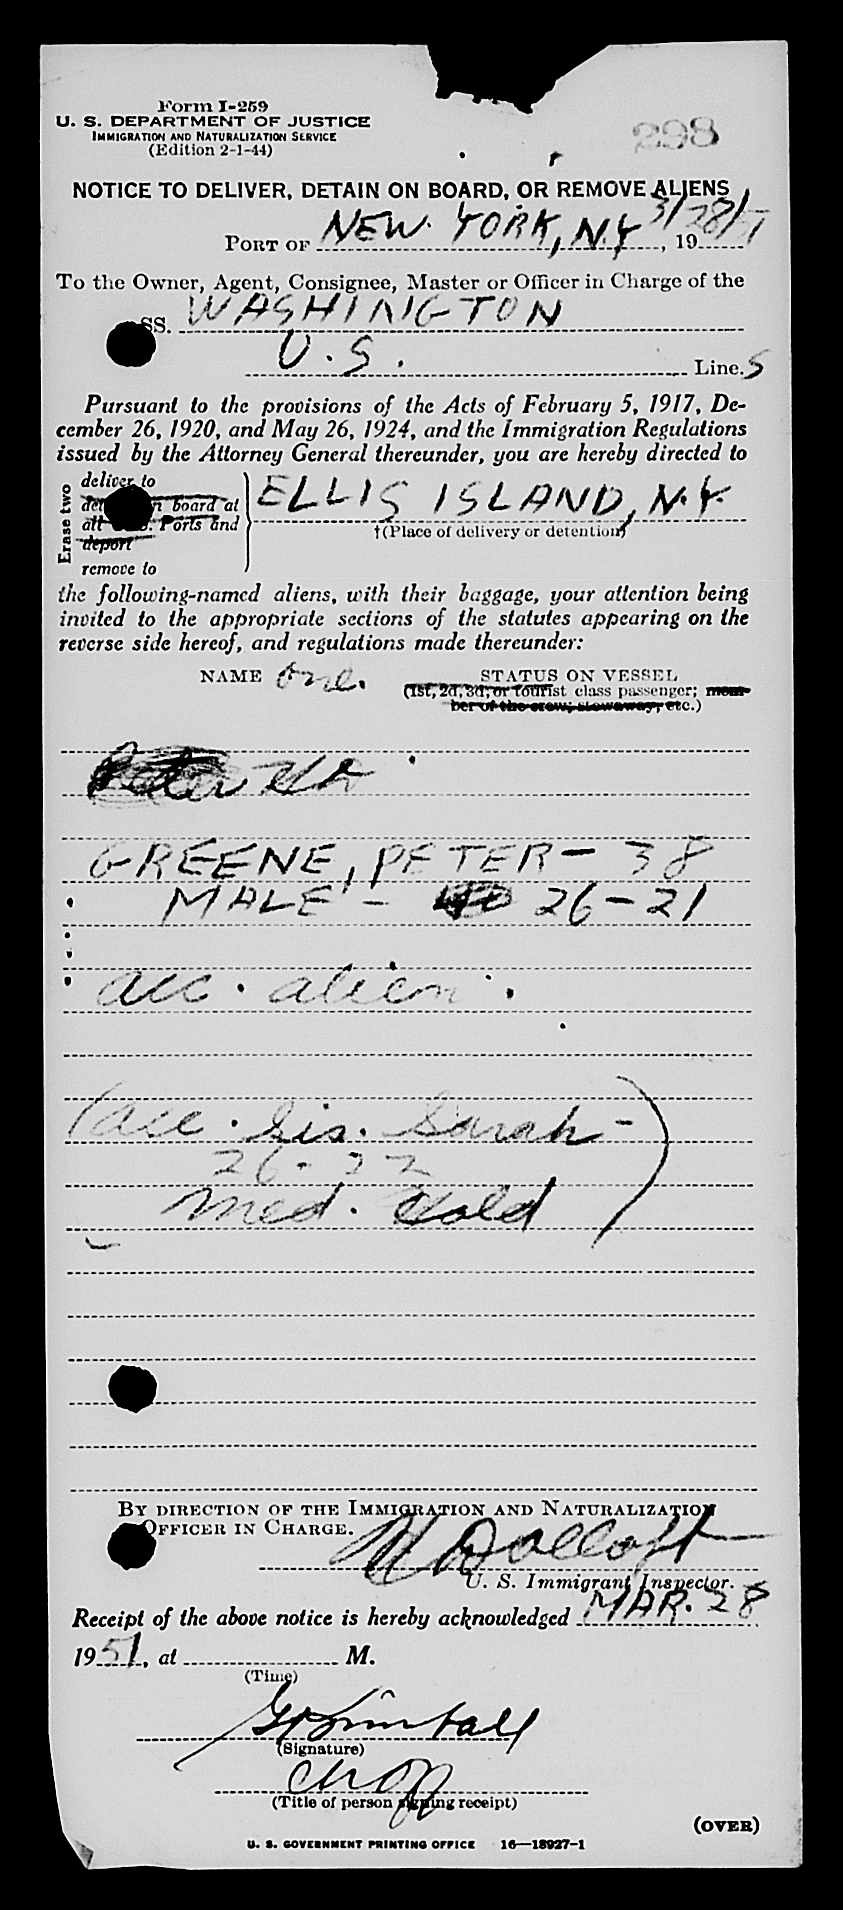 Form I-259
U. S. DEPARTMENT OF JUSTICE
IMMIGRATION AND NATURALIZATION SERVICE
(Edition 2-1-44)
298
NOTICE TO DELIVER, DETAIN ON BOARD, OR REMOVE ALIENS
PORT OF NEW YORK, N.Y 3/28/51, 19
To the Owner, Agent, Consignee, Master or Officer in Charge of the
SS. WASHINGTON
U.S. Line.S
Pursuant to the provisions of the Acts of February 5, 1917, De-
cember 26, 1920, and May 26, 1924, and the Immigration Regulations
issued by the Attorney General thereunder, you are hereby directed to
Erase two
deliver to
board at
Ports and
deport
remove to
ELLIS ISLAND, N.Y.
†(Place of delivery or detention)
the following-named aliens, with their baggage, your attention being
invited to the appropriate sections of the statutes appearing on the
reverse side hereof, and regulations made thereunder:
NAME one. STATUS ON VESSEL
(1st, 2d, 3d, or tourist class passenger; mem-
ber of the crew; stowaway, etc.)
Peter
GREENE, PETER - 38
MALE - 26-21
acc. alien.
(acc. sis. Sarah -
26-22
med. Hold)
BY DIRECTION OF THE IMMIGRATION AND NATURALIZATION
OFFICER IN CHARGE.
U. S. Immigrant Inspector.
Receipt of the above notice is hereby acknowledged MAR. 28
1951, at M.
(Time)
(Signature)
(Title of person signing receipt)
(OVER)
U. S. GOVERNMENT PRINTING OFFICE 16—18927-1